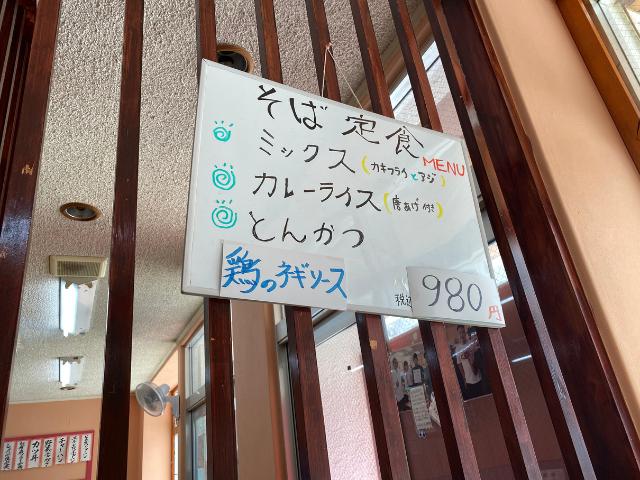 そば定食
MENU
ミックス(カキフライとアジ)
カレーライス(唐あげ付き)
とんかつ
鶏のネギソース
税込
980円
チャーハン
カツ丼